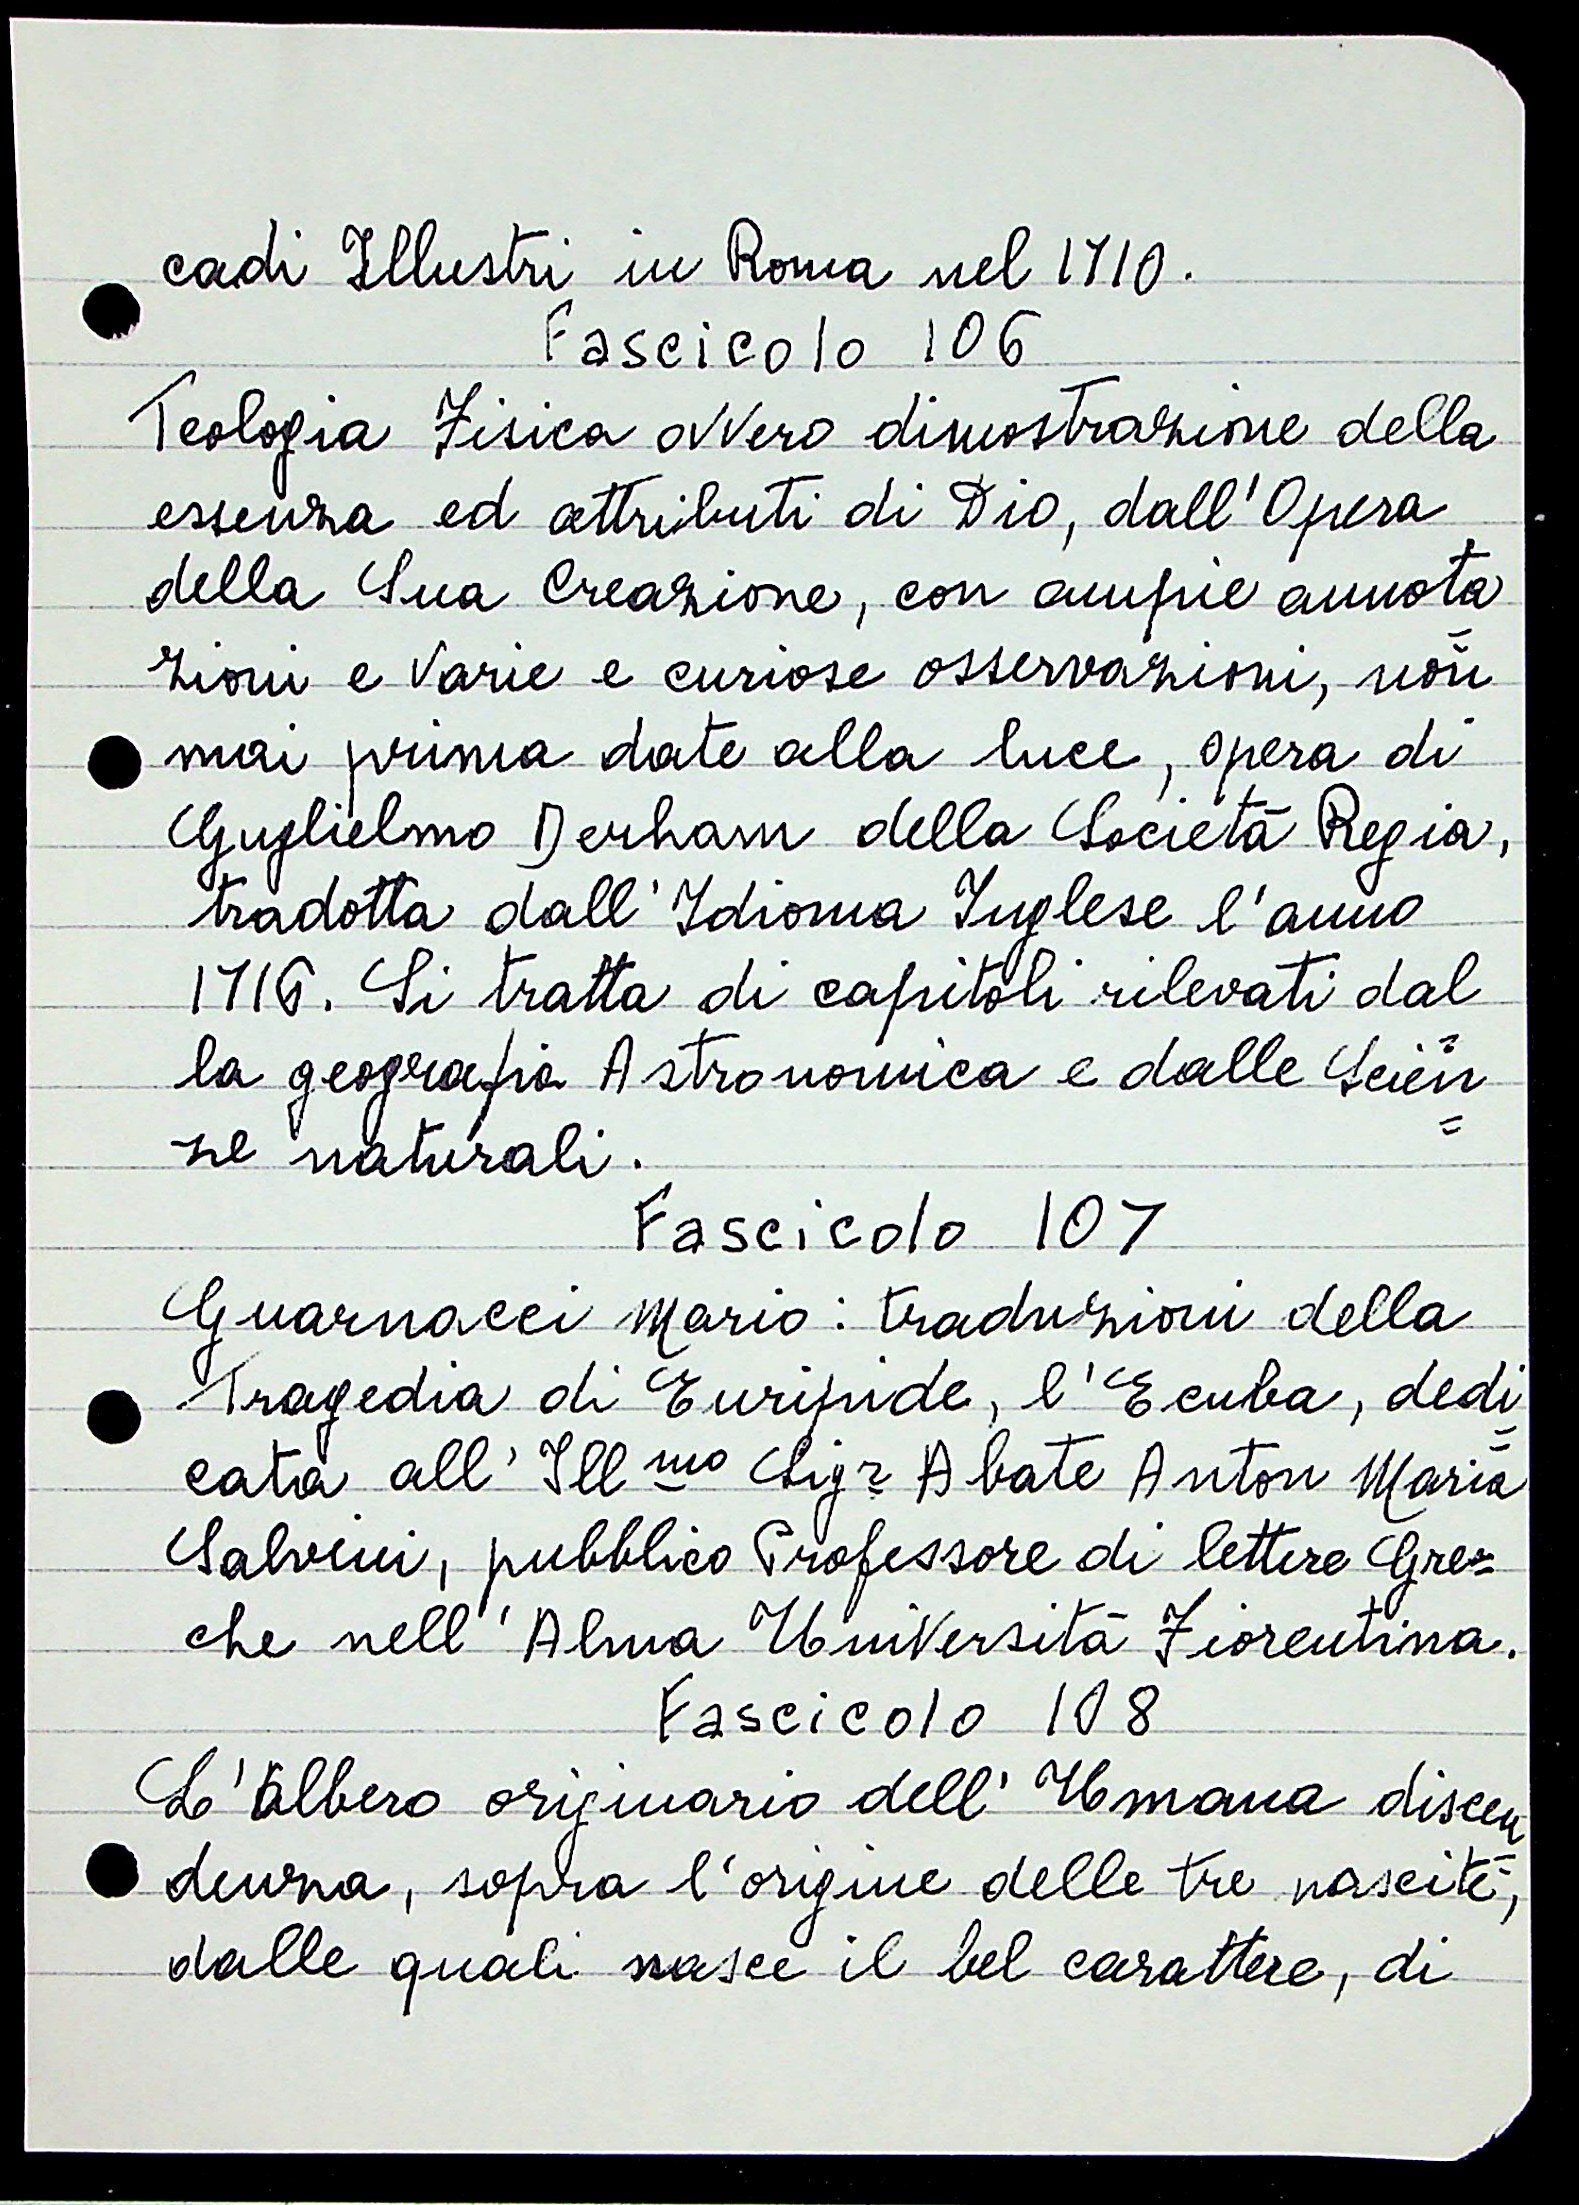 cadi Illustri in Roma nel 1710.
Fascicolo 106
Teologia Fisica ovvero dimostrazione della
essenza ed attributi di Dio, dall'Opera
della Sua Creazione, con ampie annota=
zioni e varie e curiose osservazioni, non
mai prima date alla luce, opera di
Guglielmo Derham della Società Regia,
tradotta dall'Idioma Inglese l'anno
1716. Si tratta di capitoli rilevati dal
la geografia Astronomica e dalle Scien=
ze naturali.
Fascicolo 107
Guarnacci Mario: traduzioni della
Tragedia di Euripide, l'Ecuba, dedi=
cata all'Ill mo Sigr Abate Anton Maria
Salvini, pubblico Professore di lettere Gre=
che nell'Alma Università Fiorentina.
Fascicolo 108
L'albero originario dell'Umana discen=
denza, sopra l'origine delle tre nascite,
dalle quali nasce il bel carattere, di